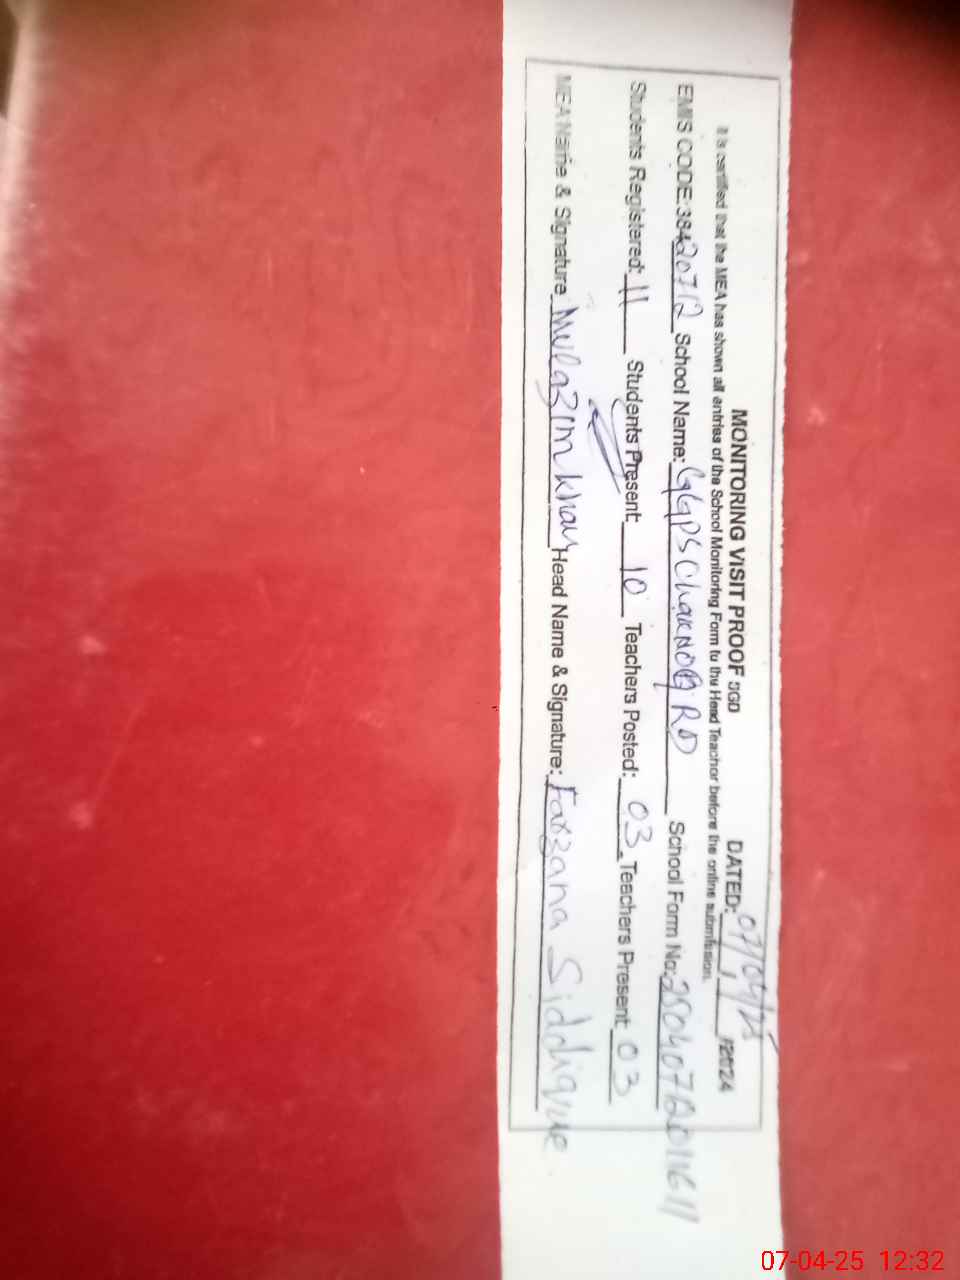 MONITORING VISIT PROOF SGD DATED: 07/04/25 /2024
It is certified that the MEA has shown all entries of the School Monitoring Form to the Head Teacher before the online submission.
EMIS CODE: 38420712 School Name: GGPS Chak NO RD School Form No: 250407
Students Registered: 11 Students Present: 10 Teachers Posted: 03 Teachers Present: 03
MEA Name & Signature Mulazim Khan Head Name & Signature: Farzana Siddique
07-04-25 12:32